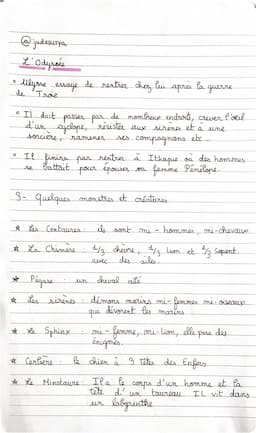 @judesurya
L'Odyssée
• Ulysse essaye de rentrer chez lui après la guerre
de Troie
• Il doit passer par de nombreux endroits, crever l'œil
d'un cyclope, résister aux sirenes et a une
sorcière, ramener ses compagnons etc.
• Il finira par rentrer à Ithaque où des hommes
se battait pour épouser sa femme Pénélope.
3- Quelques monstres et créatures
* Les Centaures : ils sont mi-hommes, mi-chevaux
* La Chimère : 1/3 chèvre, 1/3 lion et 1/3 serpent.
avec des ailes.
* Pégase : un cheval ailé
* Les sirènes : démons marins mi-femmes mi-oiseaux
qui dévorent les marins
* Le Sphinx : mi-femme, mi-lion, elle pose des
énigmes.
* Cerbère : le chien à 3 têtes des Enfers
* Le Minotaure : Il a le corps d'un homme et la
tête d'un taureau Il vit dans
un labyrinthe